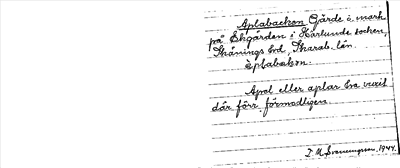 Aplabackon Gärde o. mark
på Ekgården i Härlunda socken,
Skånings hd, Skarab. län.
àplabakon.
Apel eller aplar ha vuxit
där förr förmodligen.
1944.